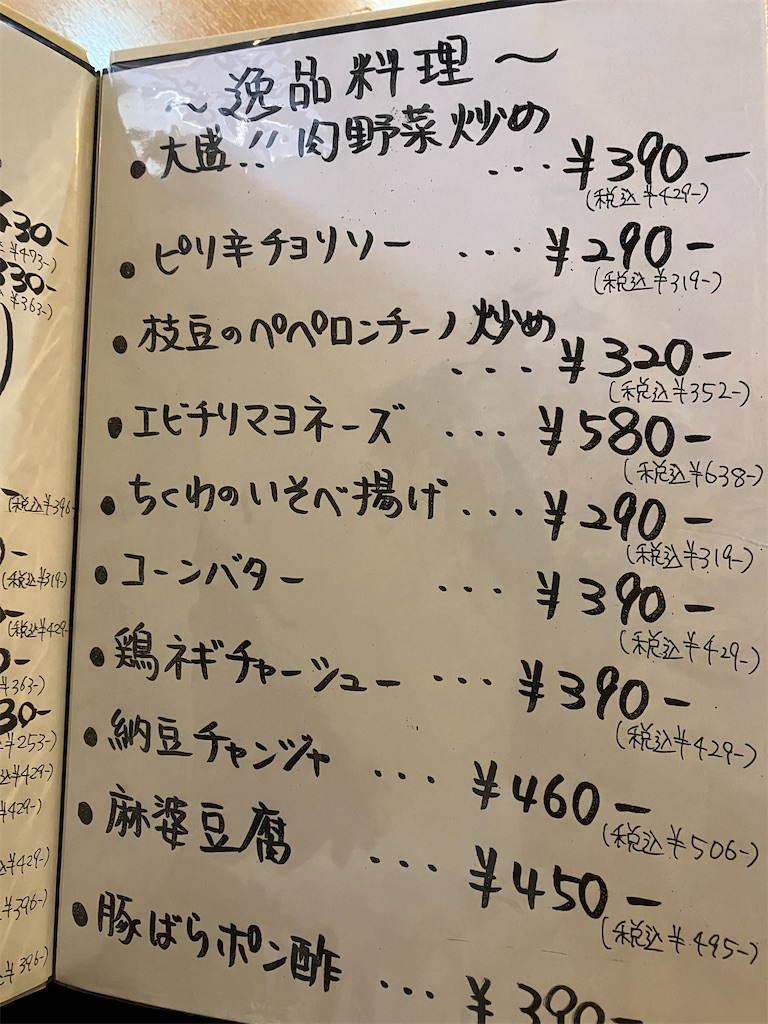 ~逸品料理~
・大盛!!肉野菜炒め ...¥390-
(税込¥429-)
・ピリ辛チョリソー ...¥290-
(税込¥319-)
・枝豆のペペロンチーノ炒め ...¥320-
(税込¥352-)
・エビチリマヨネーズ ...¥580-
(税込¥638-)
・ちくわのいそべ揚げ ...¥290-
(税込¥319-)
・コーンバター ...¥390-
(税込¥429-)
・鶏ネギチャーシュー ...¥390-
(税込¥429-)
・納豆チャンジャ ...¥460-
(税込¥506-)
・麻婆豆腐 ...¥450-
(税込¥495-)
・豚ばらポン酢 ...¥390
30-
¥473-)
330-
¥363-)
(税込¥396-
(税込¥319-)
(税込¥429-
¥363-)
30-
¥253-)
込¥429-)
¥429-)
¥429-)
¥396-)
¥396-)